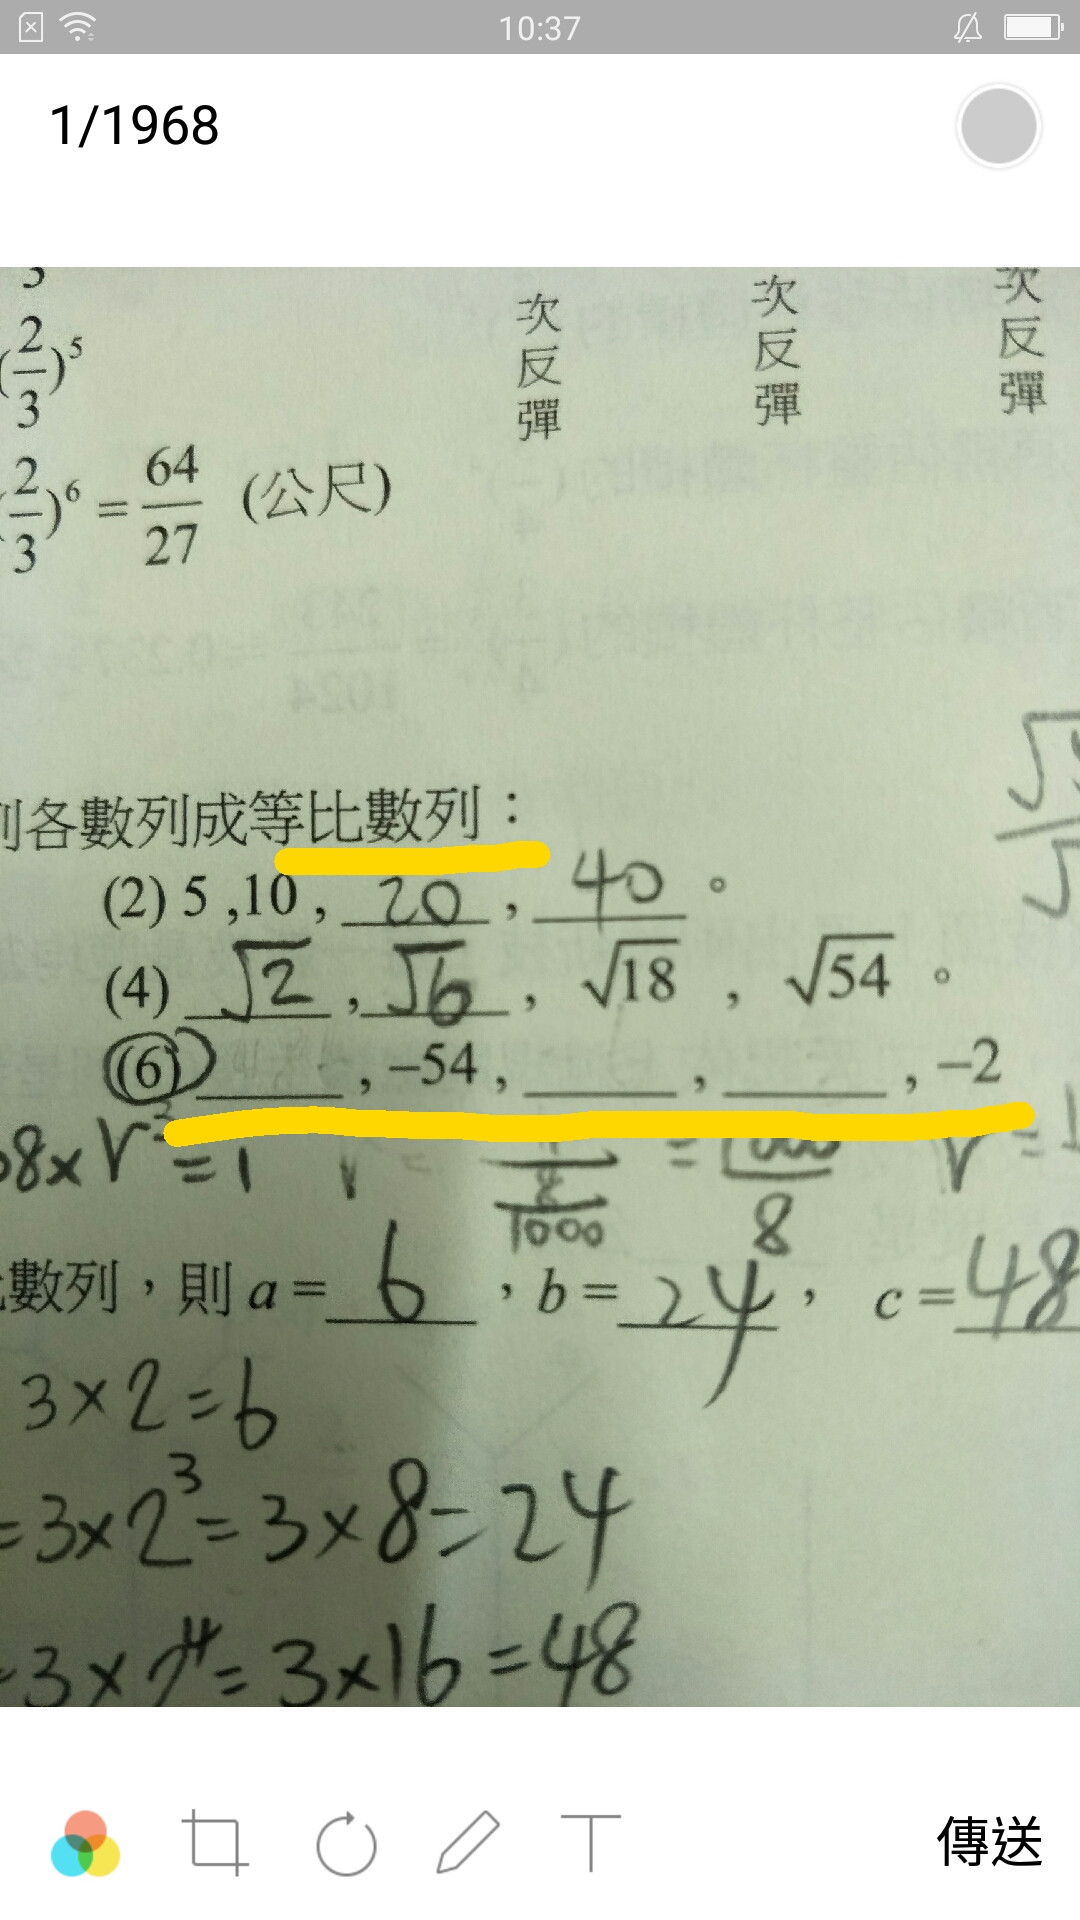 10:37
1/1968
3
(2/3)^5
次反彈 次反彈 次反彈
2/3)^6 = 64/27 (公尺)
列各數列成等比數列：
(2) 5 ,10 , 20 , 40 。
(4) √2 , √6 , √18 , √54 。
(6) ____ , –54 , ____ , ____ , –2
8× r = 1
8
1000
8
數列，則 a = 6 , b = 24 , c = 48
3×2=6
=3×2^3=3×8=24
3×2^4=3×16=48
傳送